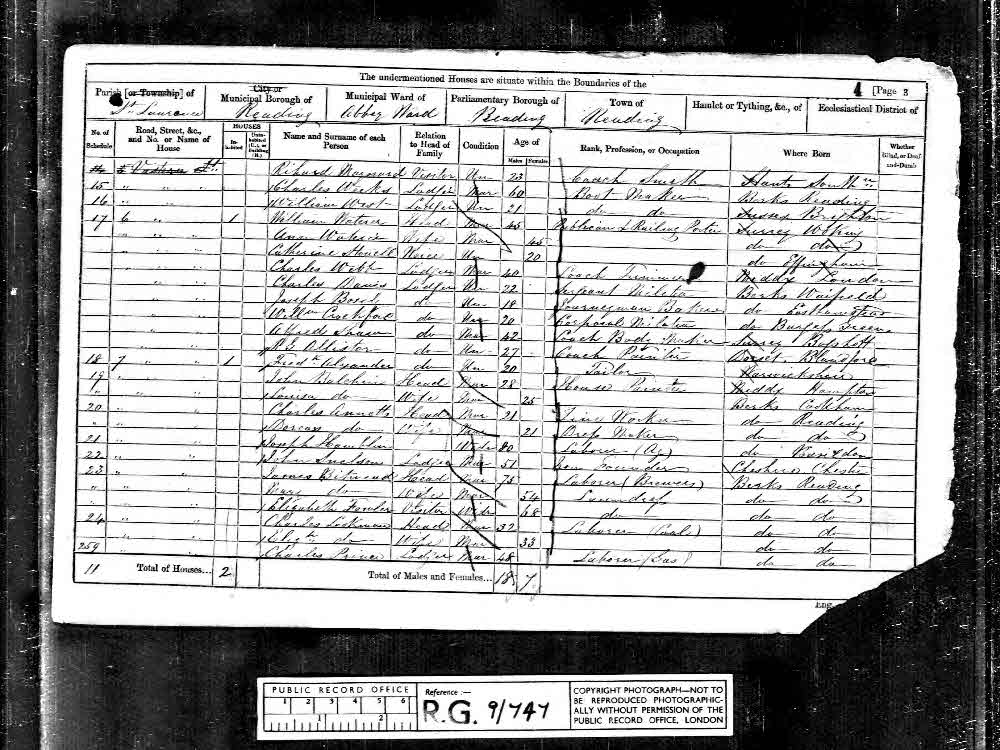 The undermentioned Houses are situate within the Boundaries of the
4 [Page 3
Parish [or Township] of
City or
Municipal Borough of
Municipal Ward of
Parliamentary Borough of
Town of
Hamlet or Tything, &c., of
Ecclesiastical District of
St Laurence Reading Abbey Ward Reading Reading
No. of Schedule
Road, Street, &c., and No. or Name of House
HOUSES
In-habited
Unin-habited (U.), or Building (B.)
Name and Surname of each Person
Relation to Head of Family
Condition
Age of
Males Females
Rank, Profession, or Occupation
Where Born
Whether Blind, or Deaf-and-Dumb
Visitor Un 23 Coach Smith Hants
15 " " Charles Weeks Lodger Mar 60 Boot Maker Berks Reading
16 " " William West Lodger Un 21 do do Sussex Brighton
17 6 " " 1 William Head Mar 45 Publican & Railway Porter Surrey Woking
Ann Wife Mar 45 do do
Catherine Niece Un 20 do Effingham
Charles Webb Lodger Mar 40 Coach Trimmer Middx London
Charles Davis Lodger Un 22 Sergeant Militia Berks
Joseph do Un 18 Journeyman Baker do
Willm do Un 20 Corporal Militia do
Alfred do Mar 42 Coach Body Maker Surrey Bagshot
do Un 27 Coach Painter Dorset Blandford
18 7 " " 1 Fredk Alexander do Un 20 Tailor Warwickshire
19 " " John Head Mar 28 House Painter Middx Hampton
Louisa do Wife 25 Berks Cookham
20 " " Charles Head Mar 21 do Reading
" Dorcas do Wife Mar 21 Dress Maker do do
21 " " Joseph Widr 80 Labourer (Ag) do
22 " " John Lodger Mar 51 Iron Founder Cheshire Chester
23 " " James Head Mar 73 Labourer (Brewers) Berks Reading
" Mary do Wife Mar 54 Laundress do do
" Elizabeth Fowler Visitor Wid 68 do do do
24 " " Charles Head Mar 32 Labourer (Coal) do do
Elizth do Wife Mar 33 do do
259 " " Charles Prince Lodger Mar 48 Labourer (Gas) do do
11 Total of Houses... 2 Total of Males and Females... 18 7
Eng.
PUBLIC RECORD OFFICE
1 2 3 4 5 6
1 2
Reference :—
R.G. 9/747
COPYRIGHT PHOTOGRAPH—NOT TO
BE REPRODUCED PHOTOGRAPHIC-
ALLY WITHOUT PERMISSION OF THE
PUBLIC RECORD OFFICE, LONDON